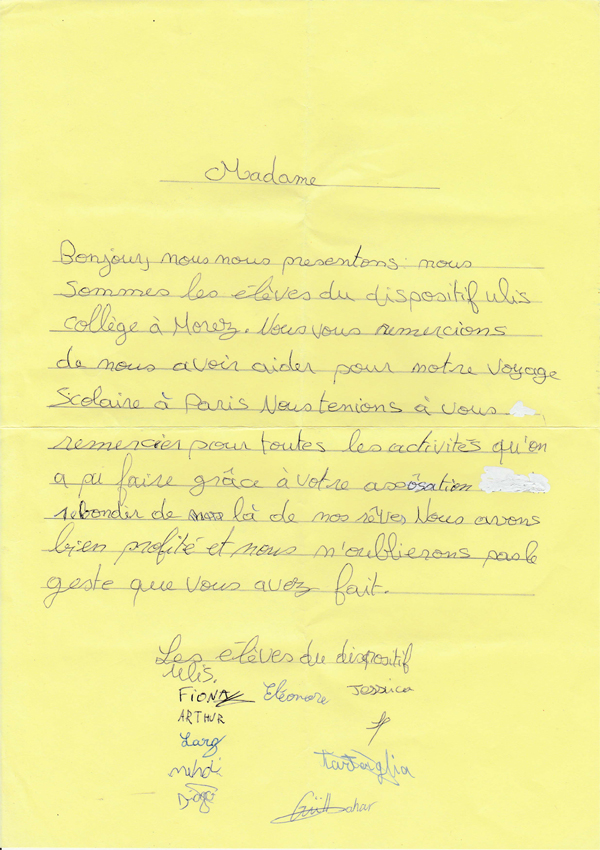 Madame
Bonjour nous nous presentons: nous
sommes les élèves du dispositif ulis
collège à Morez. Nous vous remercions
de nous avoir aider pour notre voyage
scolaire à Paris Nous tenions à vous
remercier pour toutes les activités qu'on
a pu faire grâce à votre assosation
rebondir de là de nos rêves Nous avons
bien profité et nous n'oublierons pas le
geste que vous avez fait.
Les élèves du dispositif
ulis.
FIONA Eléonore Jessica
ARTHUR
Lara
Mehdi Tartaglia
Diego
Gülbahar